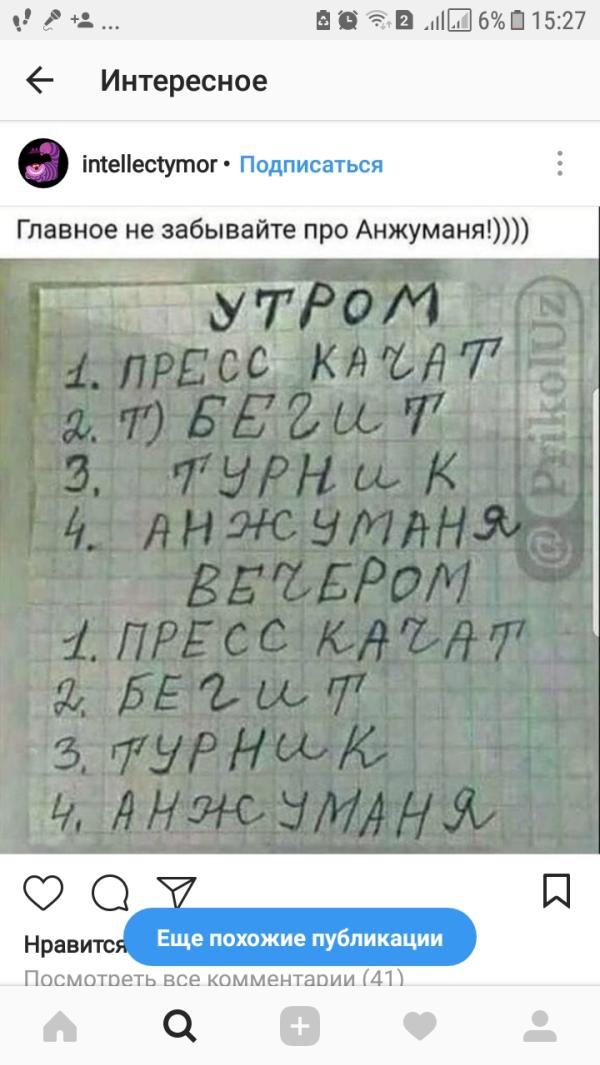 ... 2 6% 15:27
Интересное
intellectymor • Подписаться
Главное не забывайте про Анжуманя!))))
УТРОМ
1. ПРЕСС КАЧАТ
2. Т) БЕГИТ
3. ТУРНИК
4. АНЖУМАНЯ
ВЕЧЕРОМ
1. ПРЕСС КАЧАТ
2. БЕГИТ
3. ТУРНИК
4. АНЖУМАНЯ
@PrikolUz
Нравится
Еще похожие публикации
Посмотреть все комментарии (41)